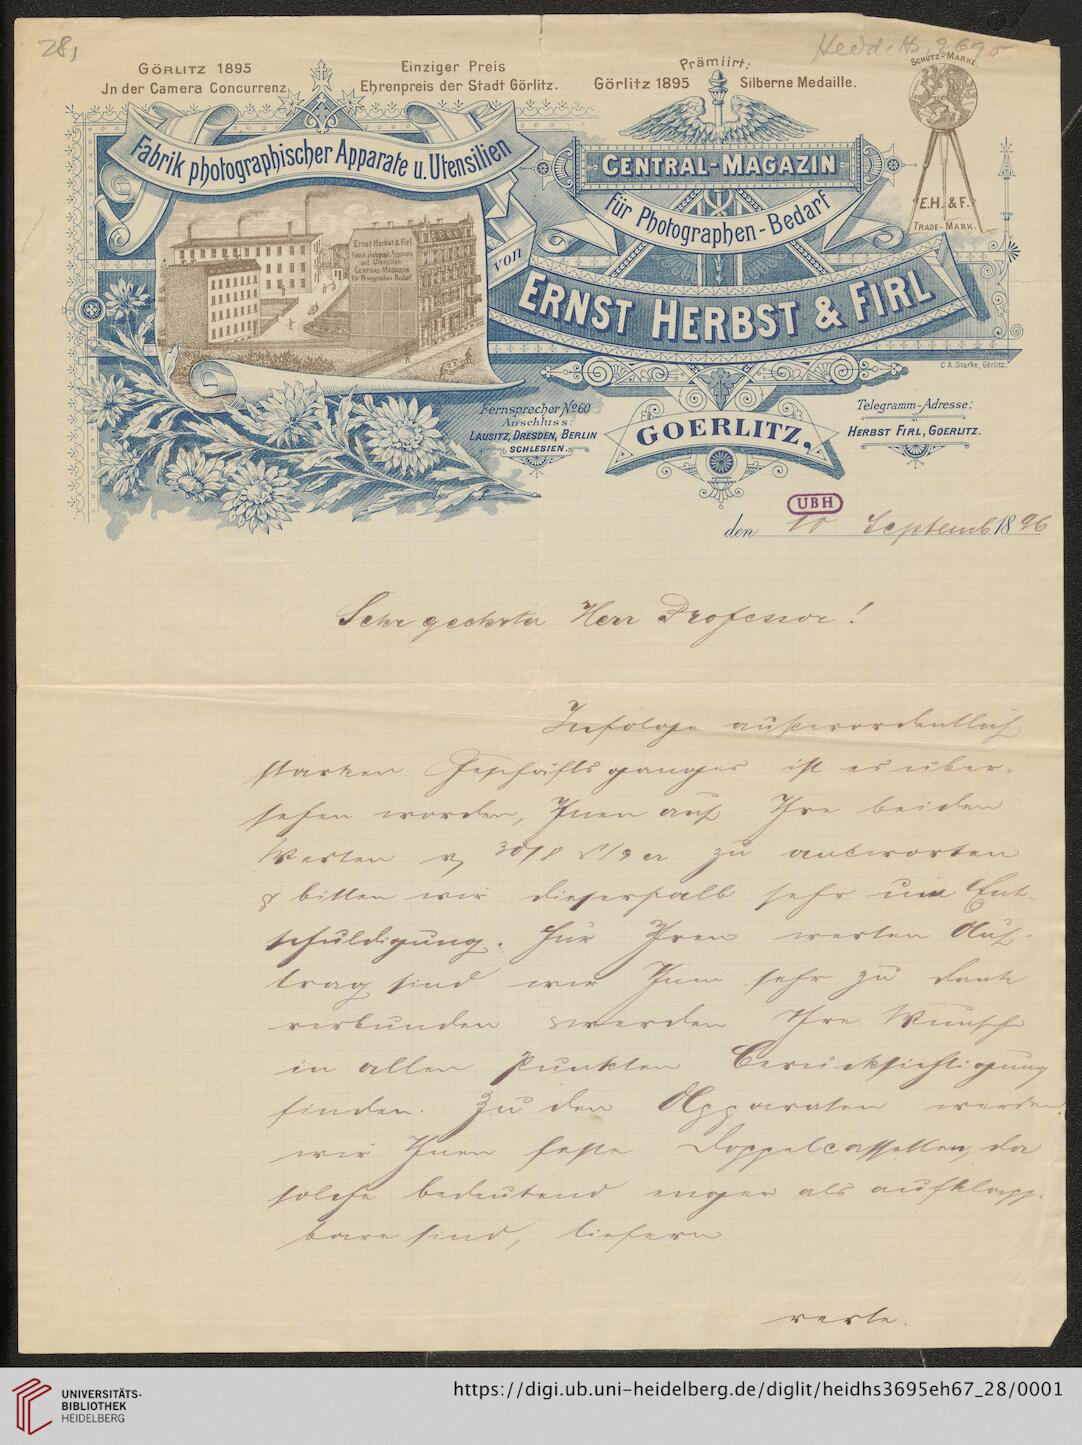 28,
Heid. Hs. 3695
GÖRLITZ 1895
Jn der Camera Concurrenz
Einziger Preis
Ehrenpreis der Stadt Görlitz.
Prämiirt:
Görlitz 1895 Silberne Medaille.
SCHUTZ-MARKE.
E.H. & F.
TRADE-MARK.
Fabrik photographischer Apparate u. Utensilien
CENTRAL-MAGAZIN
für Photographen-Bedarf
von
ERNST HERBST & FIRL
Ernst Herbst & Firl
Fabrik photograph. Apparate
und Utensilien
CENTRAL-MAGAZIN
für Photographen-Bedarf
C.A. Starke, Görlitz.
Fernsprecher No 60
Anschluss:
LAUSITZ, DRESDEN, BERLIN
SCHLESIEN.
GOERLITZ,
Telegramm-Adresse:
HERBST FIRL, GOERLITZ.
UBH
den 10 Septemb 1896
Sehr geehrter Herr Professor!
Infolge außerordentlich
starken Geschäftsganges ist es über-
sehen worden, Ihnen auf Ihre beiden
Werten v. 30/8 & 8/9 er zu antworten
& bitten wir dieserhalb sehr um Ent-
schuldigung. Für Ihren werten Auf-
trag sind wir Ihnen sehr zu Dank
verbunden & werden Ihre Wünsche
in allen Punkten Berücksichtigung
finden. Zu den Apparaten werden
wir Ihnen feste Doppelcassetten, da
solche bedeutend enger als aufklapp-
bare sind, liefern
verte.
UNIVERSITÄTS-
BIBLIOTHEK
HEIDELBERG
https://digi.ub.uni-heidelberg.de/diglit/heidhs3695eh67_28/0001